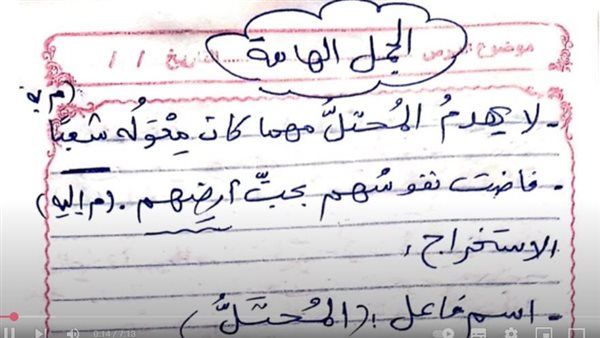 الجمل الهامة
موضوع الدرس التاريخ / /
(م به)
- لا يهدمُ المُحتلُّ مهما كان مِعْوَلُه شعبًا
- فاضت نفوسُهم بحبِّ أرضِهم . (م إليه)
الاستخراج :
- اسم فاعل : (المُحتَلُّ)
0:14 / 7:13